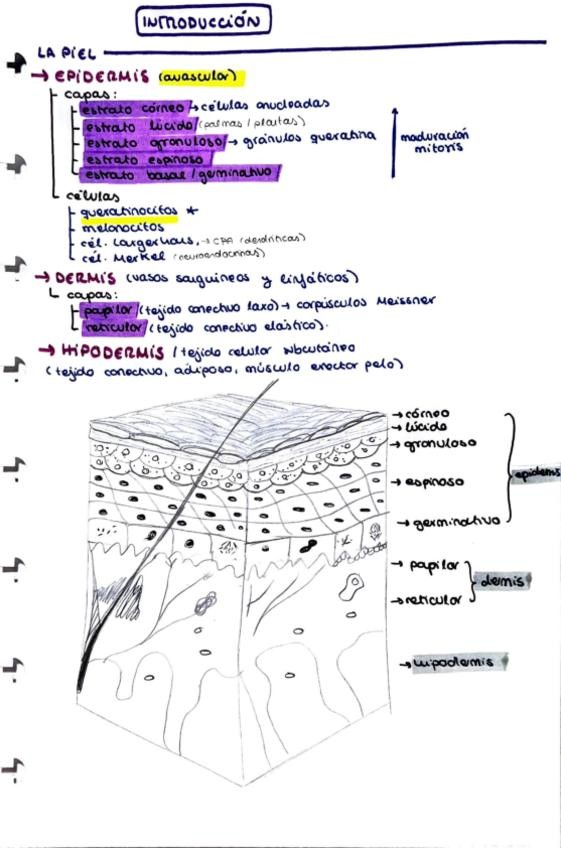 INTRODUCCIÓN
LA PIEL
→ EPIDERMIS (avascular)
capas:
estrato córneo → células anucleadas
estrato lúcido (palmas / plantas)
estrato granuloso → gránulos queratina
estrato espinoso
estrato basal / germinativo
maduración
mitosis
células
queratinocitos *
melanocitos
cél. Langerhans, → CPA (dendríticas)
cél. Merkel (neuroendocrinas)
→ DERMIS (vasos sanguíneos y linfáticos)
capas:
papilar (tejido conectivo laxo) → corpúsculos Meissner
reticular (tejido conectivo elástico).
→ HIPODERMIS / tejido celular subcutáneo
(tejido conectivo, adiposo, músculo erector pelo)
→ córneo
→ lúcido
→ granuloso
→ espinoso
→ germinativo
epidermis
→ papilar
→ reticular
dermis
→ hipodermis